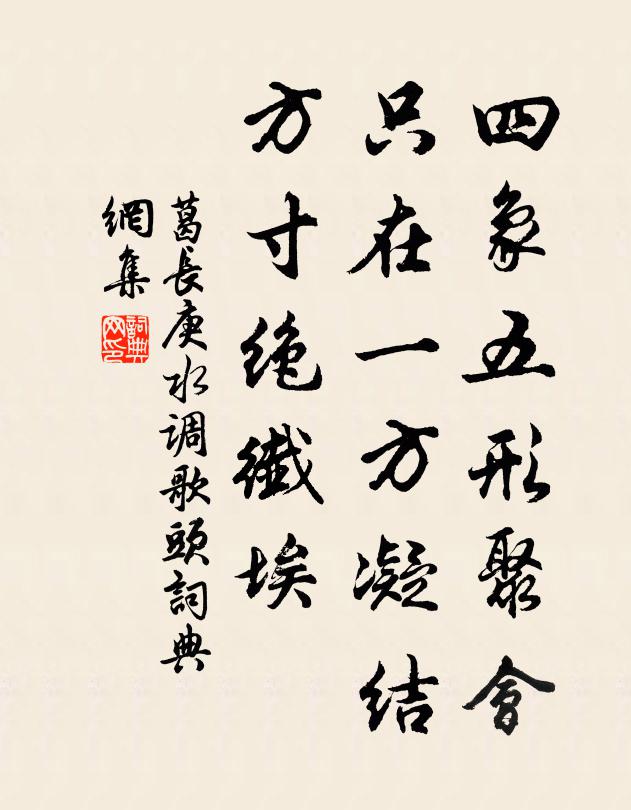 四象五形聚會
只在一方凝结
方寸绝纖埃
葛長庚水调歌頭詞典
網集
詞典
网印